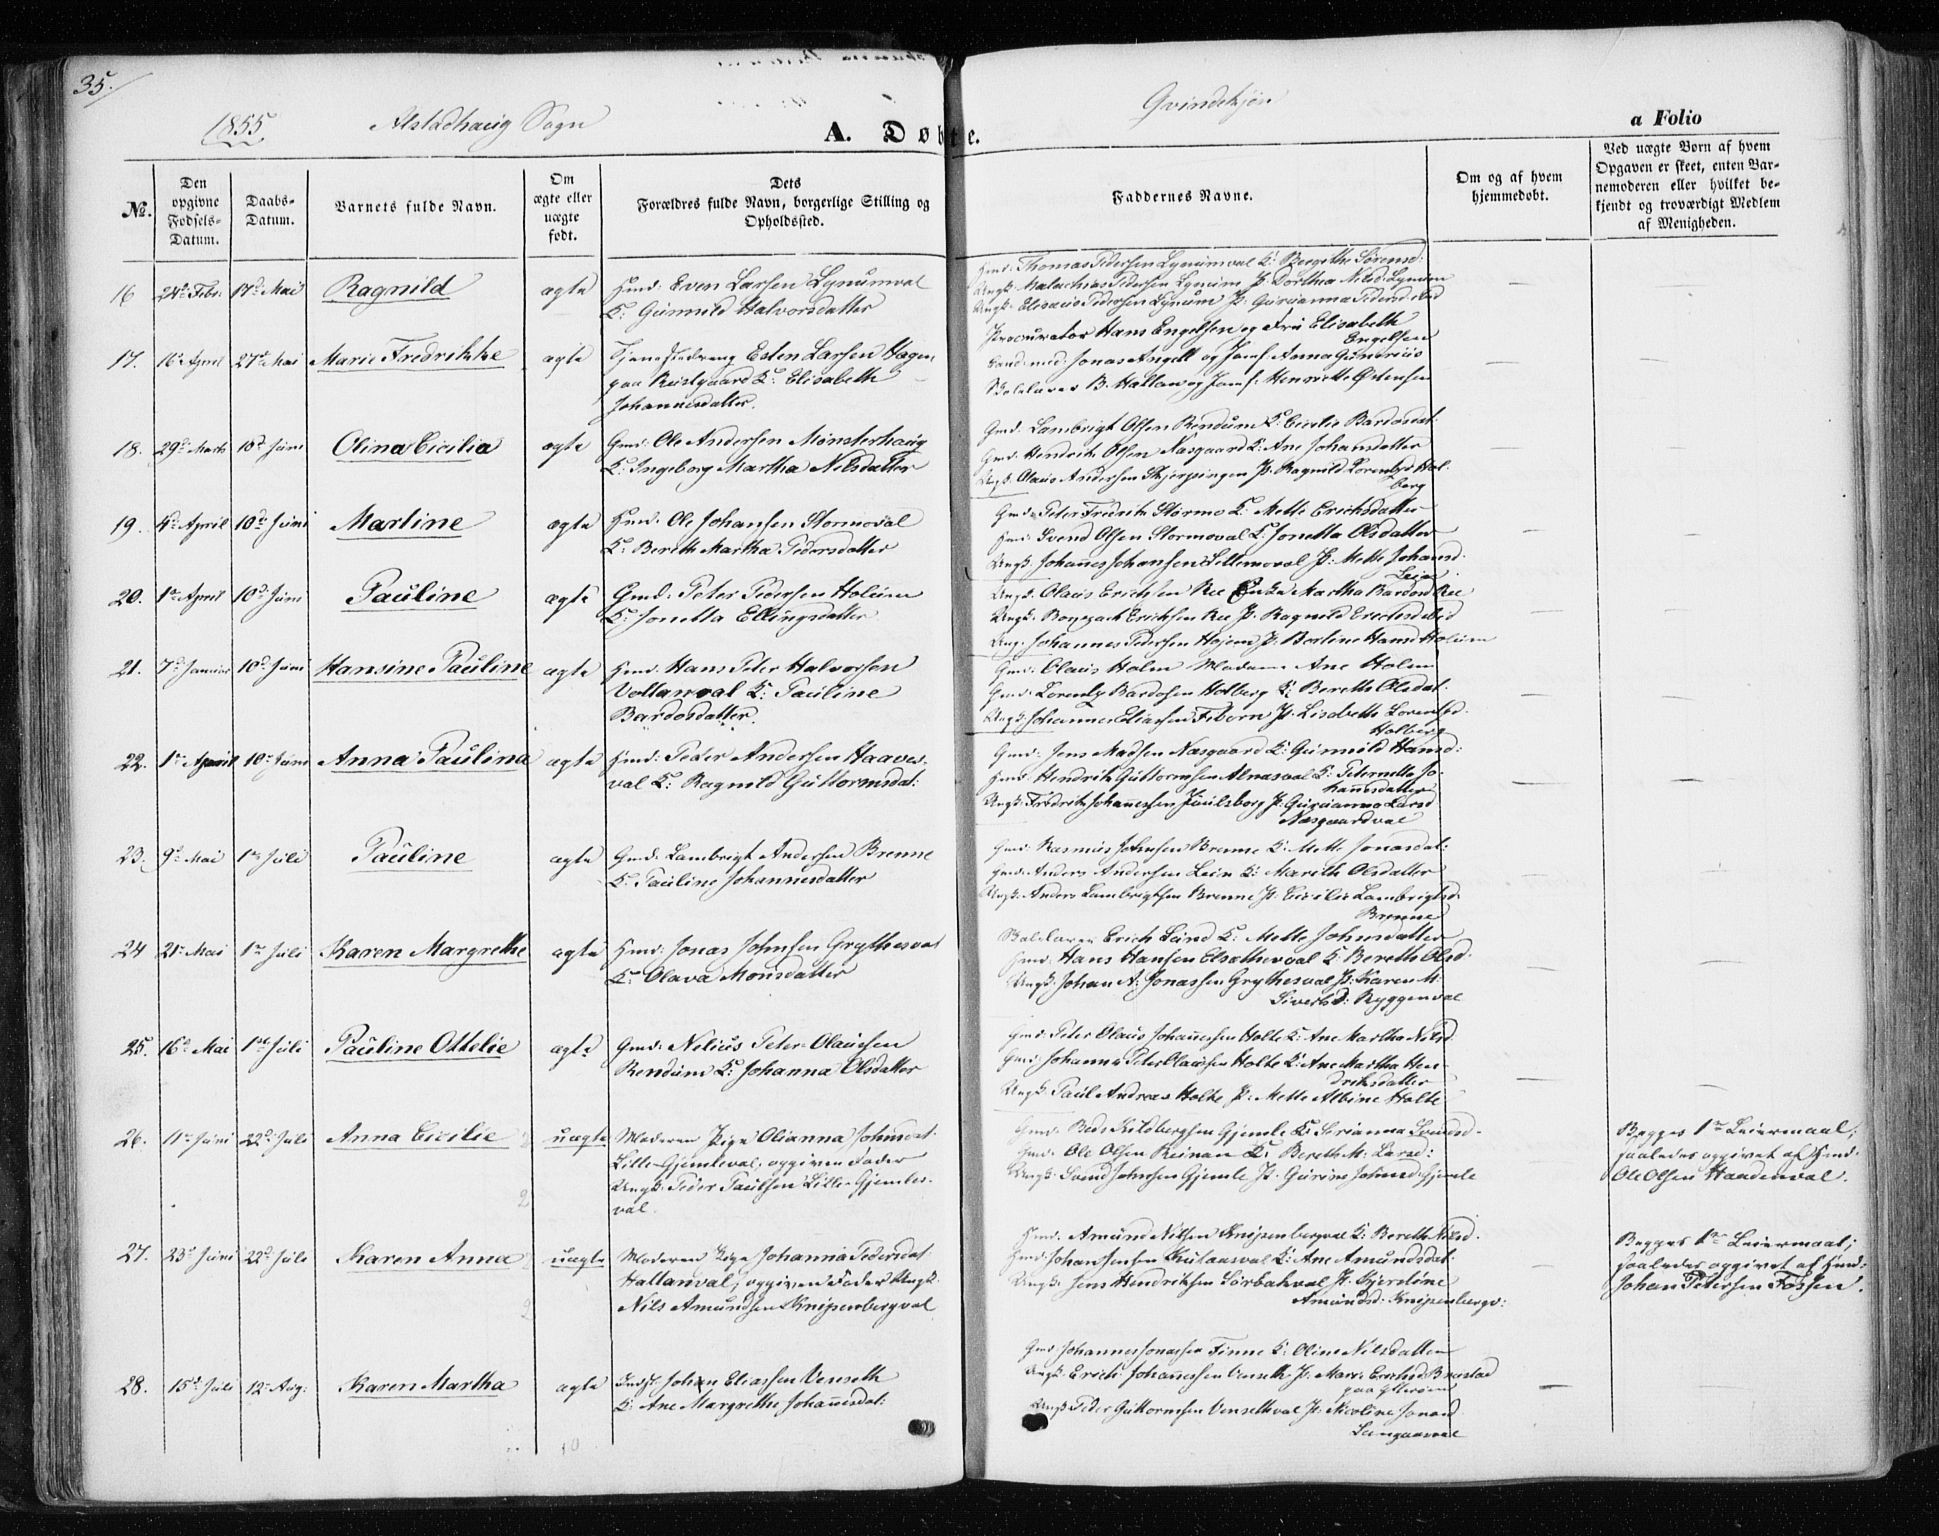 35.
1855
Alstadhaug Sogn
Qvindekjøn
A. Døbte.
a Folio
No.
Den opgivne Fødsels-Datum.
Daabs-Datum.
Barnets fulde Navn.
Om ægte eller uægte født.
Dets Forældres fulde Navn, borgerlige Stilling og Opholdssted.
Faddernes Navne.
Om og af hvem hjemmedøbt.
Ved uægte Børn af hvem Opgaven er skeet, enten Barnemoderen eller hvilket bekjendt og troværdigt Medlem af Menigheden.
16 24de Febr: 17de Mai Ragnild ægte Huusmd: Even Larsen Lynumval
K: Gunnild Halvorsdatter
Hmd: Thomas Pedersen Lynumval K: Beregithe Sørensd:
Ungk: Malachias Pedersen Lynum P: Dorthea Nilsd: Lynum
Ungk: Elisæus Pedersen Lynum P: Gurianna Pedersd: ibid
17. 16de April 27de Mai Marie Fredrikke ægte Tjenestedreng Esten Larsen Hagen
paa Rustgaard K: Elisabeth
Johannesdatter.
Procurator Hans Engelsen og Fru Elisabeth
Engelsen
Cand: med: Jonas Angell og Jomf: Anna Gunerius
Skolelærer B: Hallan og Jomf: Henriette Ostensen
18. 29de Marts 10de Juni Olina Cicilia ægte Gmd: Ole Andersen Mønsterhaug
K: Ingeborg Martha Nilsdatter
Gmd: Lambrigt Olsen Rendum K: Cicilie Bardosdat:
Gmd: Hendrik Olsen Næsgaard K: Ane Johansdatter
Ungk: Olaus Andersen Skjerpingen P: Ragnild Lorentsd: Hol-
berg
19. 4de April 10de Juni Martine ægte Hmd: Ole Johansen Stormoval
K: Bereth Martha Pedersdatter
Gmd: Peter Fredrik Stormo K: Mette Erichsdatter
Hmd: Svend Olsen Stormoval K: Jonetta Olsdatter
Ungk: Johannes Johansen Lillemoval P: Mette Johansd:
Lein
20. 1ste April 10de Juni Pauline ægte Gmd: Peter Pedersen Holum
K: Jonetta Ellingsdatter
Ungk: Olaus Erichsen Ree Enke Martha Bardosd: Ree
Ungk: Bonsach Erichsen Ree P: Ragnild Erichsd: ibid
Ung: Johannes Pedersen Hojem P: Berline Hansd: Holum
21. 7de Januar 10de Juni Hansine Pauline ægte Hmd: Hans Peter Halvorsen
Vollanval K: Pauline
Bardosdatter.
Gmd: Olaus Holm Madame Ane Holm
Gmd: Lorents Bardosen Holberg K: Bereth Olsdat:
Ungk: Johannes Eliassen Fiborn P: Lisabeth Lorentsd:
Holberg
22. 1ste April 10de Juni Anna Paulina ægte Hmd: Peder Andersen Haaves-
val K: Ragnild Guttormsdat:
Gmd: Jens Madsen Næsgaard K: Gunnild Hansd:
Hmd: Hendrik Guttormsen Alnæsval K: Peternella Jo-
hannesdatter
Ungk: Fredrik Johannessen Juulsborg P: Gurianna Larsd
Næsgaardval
23. 9de Mai 1ste Juli Pauline ægte Gmd: Lambrigt Andersen Brenne
K: Pauline Johannesdatter
Gmd: Rasmus Johnsen Brenne K: Mette Jonasdat:
Gmd: Anders Andersen Lein K: Marith Olsdatter
Ungk: Anders Lambrigtsen Brenne P: Cicilie Lambrigtsd:
Brenne
24 21de Mai 1ste Juli Karen Margrethe ægte Hmd: Jonas Johnsen Grythesval
K: Olava Monsdatter
Skolelærer Erich Lund K: Mette Johnsdatter
Hmd: Hans Hansen Elsethvoal K: Bereth Olsd.
Ungk: Johan A: Jonassen Grythesval P: Karen M:
Sivertsd: Ryggenval
25. 16de Mai 1ste Juli Pauline Ottelie ægte Gmd: Nelius Peter Olausen
Rendum K: Johanna Olsdatter
Gmd: Peter Olaus Johannessen Holte K: Ane Martha Nilsd:
Gmd: Johannes Peter Olaussen Holte K: Ane Martha Hen-
driksdatter
Ungk: Paul Andreas Holte P: Mette Albine Holte
26. 11te Juni 22de Juli Anna Cicilie uægte Moderen Pige Olianna Johnsdat:
Lille-Gjemleval, opgiven Fader
Ungk: Peder Paulsen Lille-Gjemles-
val.
Gmd: Beds Kildbergsen Gjemle K: Serianna Svendsd:
Hmd: Ole Olsen Reinan K: Bereth M: Larsd:
Ungk: Svend Johnsen Gjemle P: Gurine Johnsd: Gjemle
Begges 1ste Leiermaal;
saaledes opgivet af Hmd:
Ole Olsen Haadenval.
27. 23de Juni 22de Juli Karen Anna uægte Moderen Pige Johanna Pedersdat
Hallanval, opgiven Fader Ungk:
Nils Amundsen Knipenbergval
Hmd: Amund Nilsen Knipenbergval K: Bereth Nilsd:
Hmd: Johan Jensen Kulaasval K: Ane Amundsdat:
Ungk: Jens Hendriksen Lørbakval P: Gjerdine
Amundsd: Knipenbergv:
Begges 1ste Leiermaal;
saaledes opgivet af Hmd:
Johan Petersen Fossen.
28. 15de Juli 12te Aug: Karen Martha ægte Indst: Johan Eliassen Venseth
K: Ane Margrethe Johannesdat:
Gmd: Johannes Jonassen Finne K: Oline Nilsdatter
Ungk: Erich Johannessen Venseth P: Mari: Erichsd: Brustad
paa Ytterøen
Ungk: Peder Guttormsen Vensethval P: Nicoline Jonasd:
Langaasval